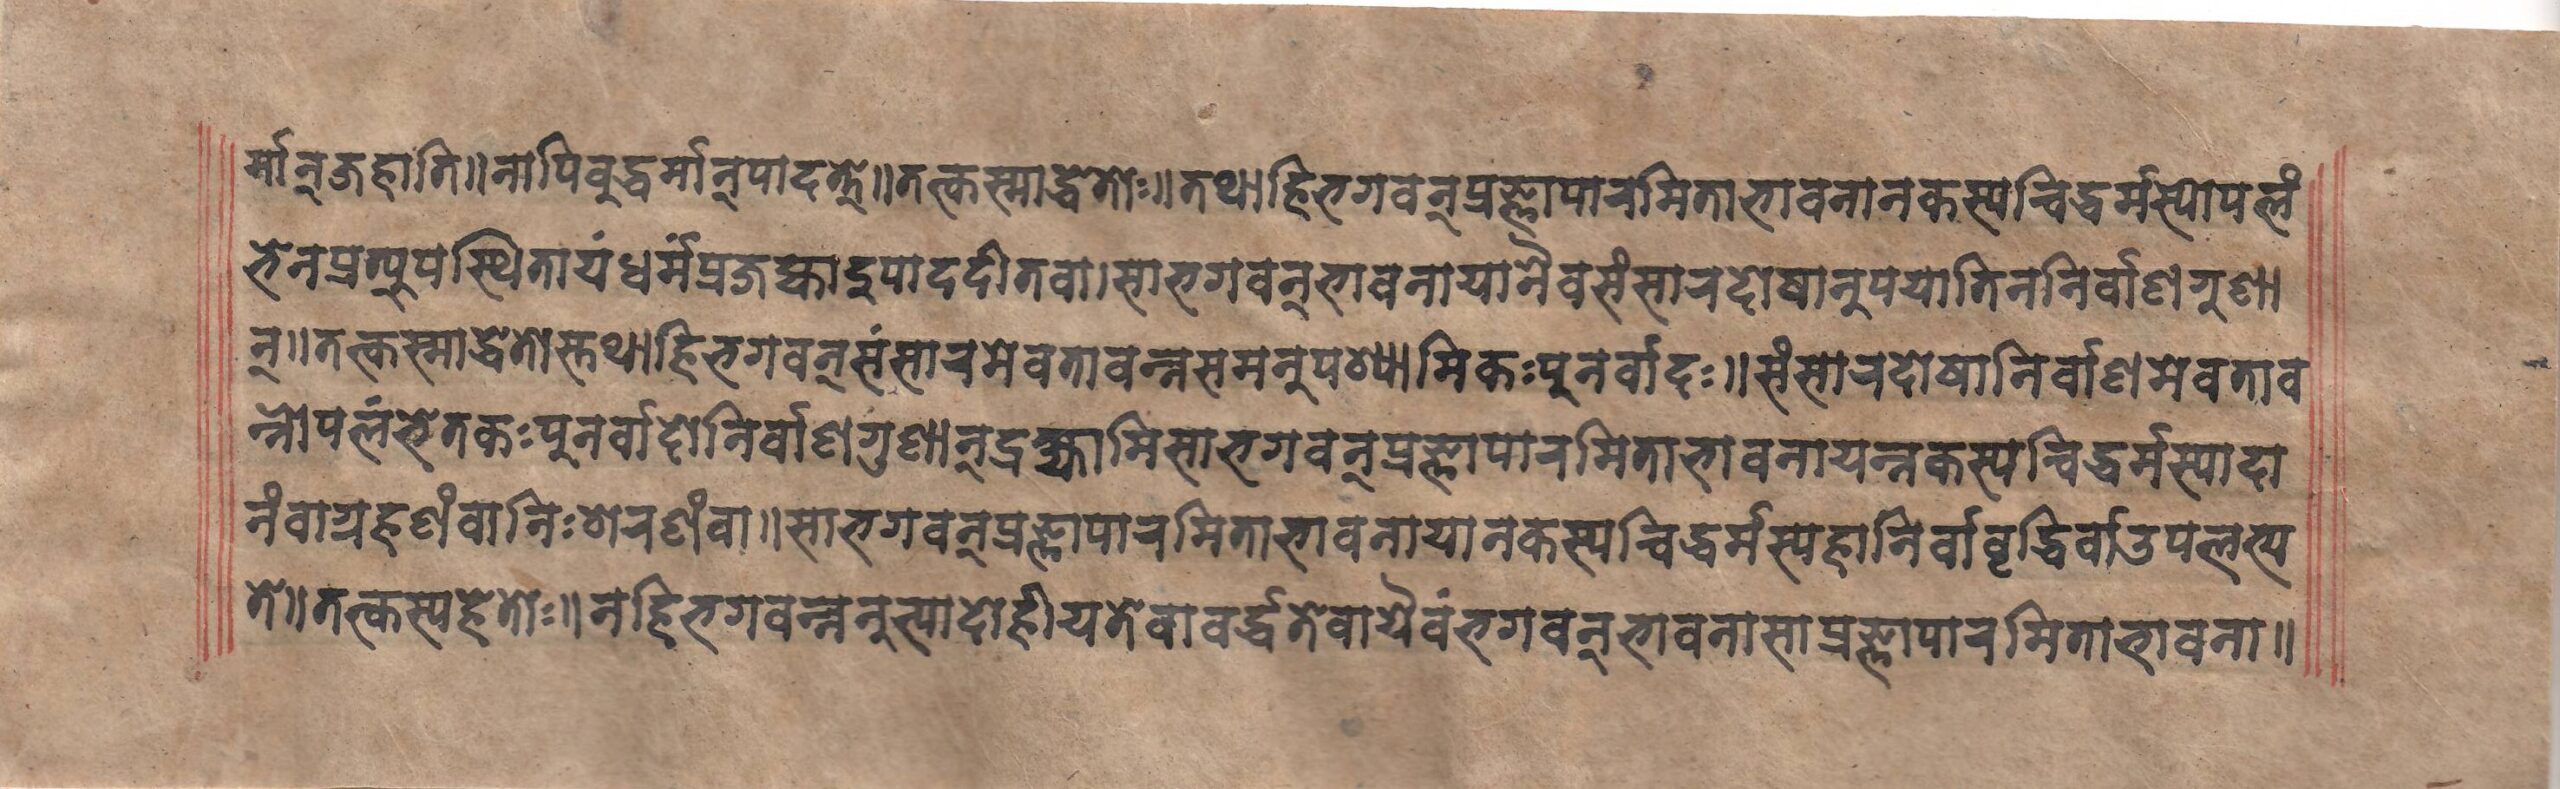 र्मान्जहाति॥नापिबुद्धर्मानुपादत्ते॥तत्कस्माद्धेतोः॥तथाहिभगवन्प्रज्ञापारमिताभावनानकस्यचिद्धर्मस्योपलं
भेनप्रत्युपस्थितायंधर्मंप्रजह्यादुपाददीतवा।साभगवन्भावनायानैवसंसारदोषानुपयातिननिर्वाणगुणा
न्॥तत्कस्माद्धेतोस्तथाहिभगवन्संसारमेवतावन्नसमनुपश्यामिकःपुनर्वादः॥संसारदोषानिर्वाणमेवताव
न्नोपलंभेतकःपुनर्वादोनिर्वाणगुणान्द्रक्ष्यामिसाभगवन्प्रज्ञापारमिताभावनायन्नकस्यचिद्धर्मस्यादा
नंवाग्रहणंवानिःशरणंवा॥साभगवन्प्रज्ञापारमिताभावनायानकस्यचिद्धर्मस्यहानिर्वावृद्धिर्वाउपलभ्य
ते॥तत्कस्यहेतोः॥नहिभगवन्ननुत्पादोहीयतेवावर्द्धतेवायैवंभगवन्भावनासाप्रज्ञापारमिताभावना॥